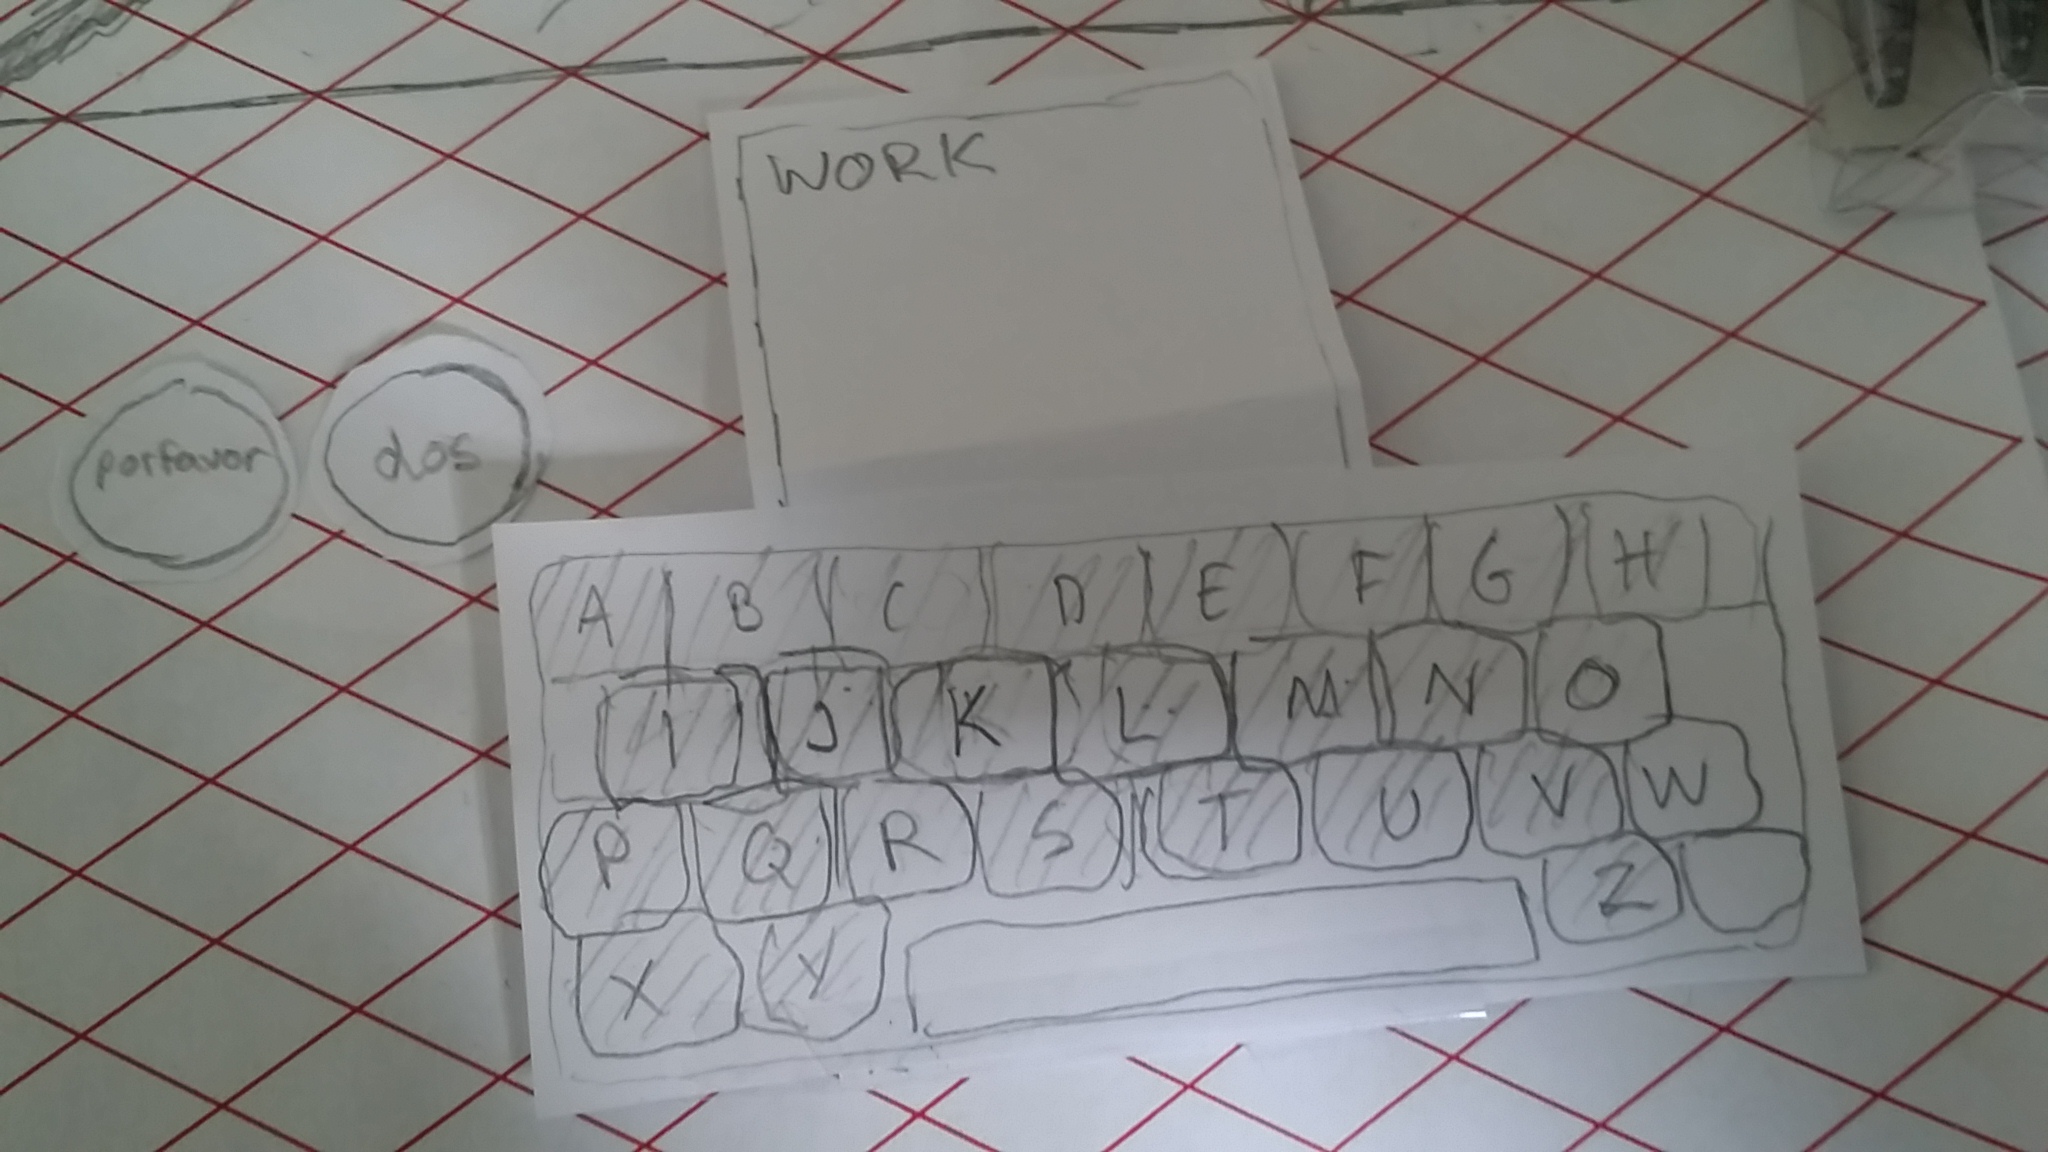 WORK
porfavor
dos
A B C D E F G H
I J K L M N O
P Q R S T U V W
X Y Z